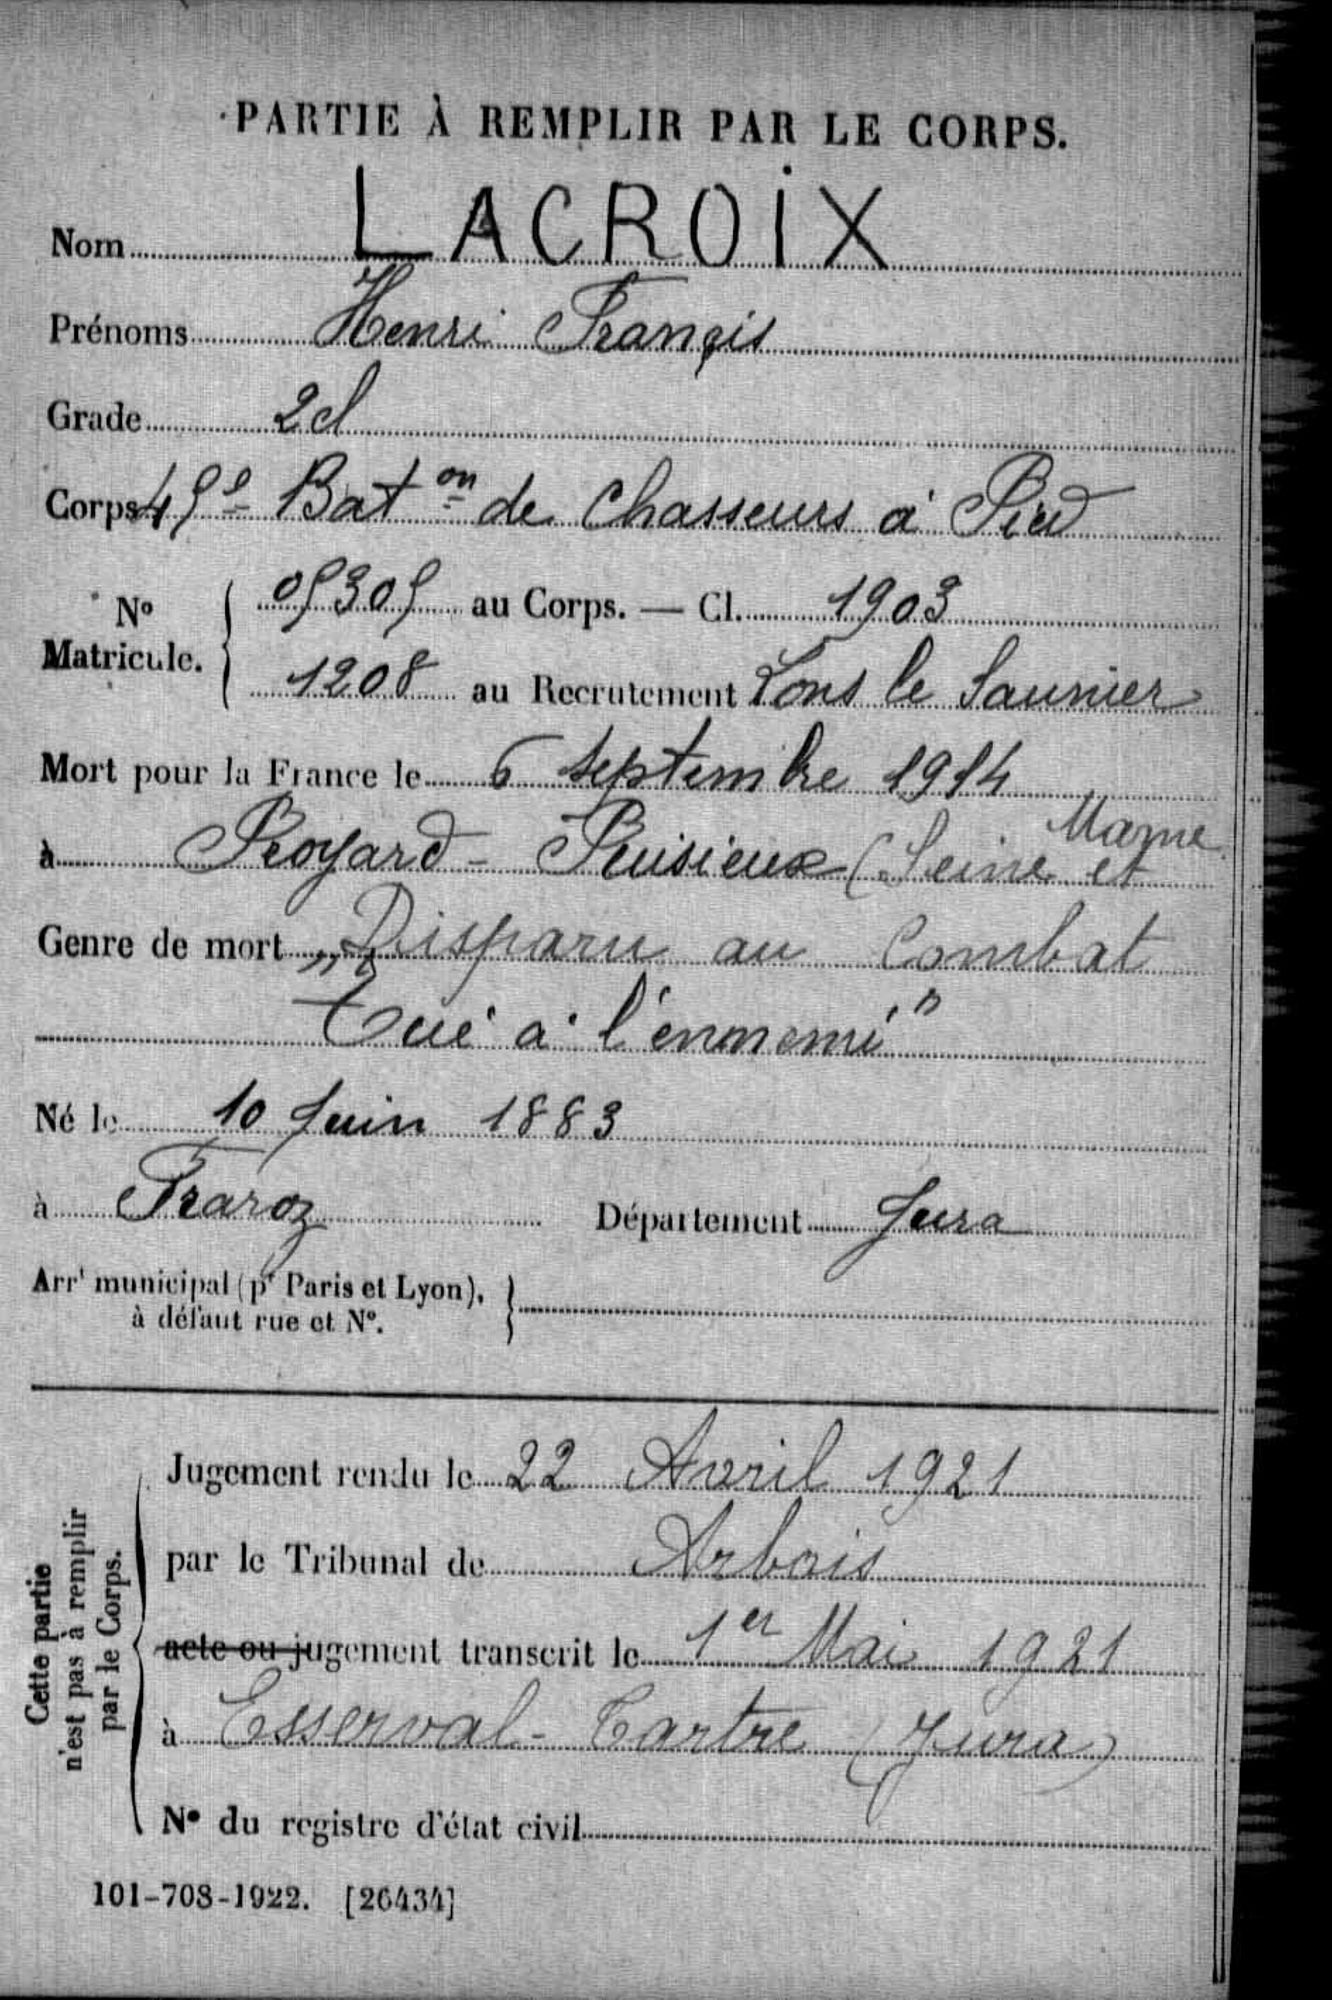 PARTIE À REMPLIR PAR LE CORPS.
Nom LACROIX
Prénoms Henri Françis
Grade 2cl
Corps 45e Baton de Chasseurs à Pied
No Matricule. 05305 au Corps. — Cl. 1903
1208 au Recrutement Lons le Saunier
Mort pour la France le 6 Septembre 1914
à Proyard - Puisieux (Seine et Marne
Genre de mort Disparu au Combat
"Tué à l'ennemi"
Né le 10 Juin 1883
à Fraroz Département Jura
Arrt municipal (pr Paris et Lyon),
à défaut rue et No.
Cette partie
n'est pas à remplir
par le Corps.
Jugement rendu le 22 Avril 1921
par le Tribunal de Arbois
acte ou jugement transcrit le 1er Mai 1921
à Esserval-Tartre (Jura)
No du registre d'état civil
101-708-1922. [26434]